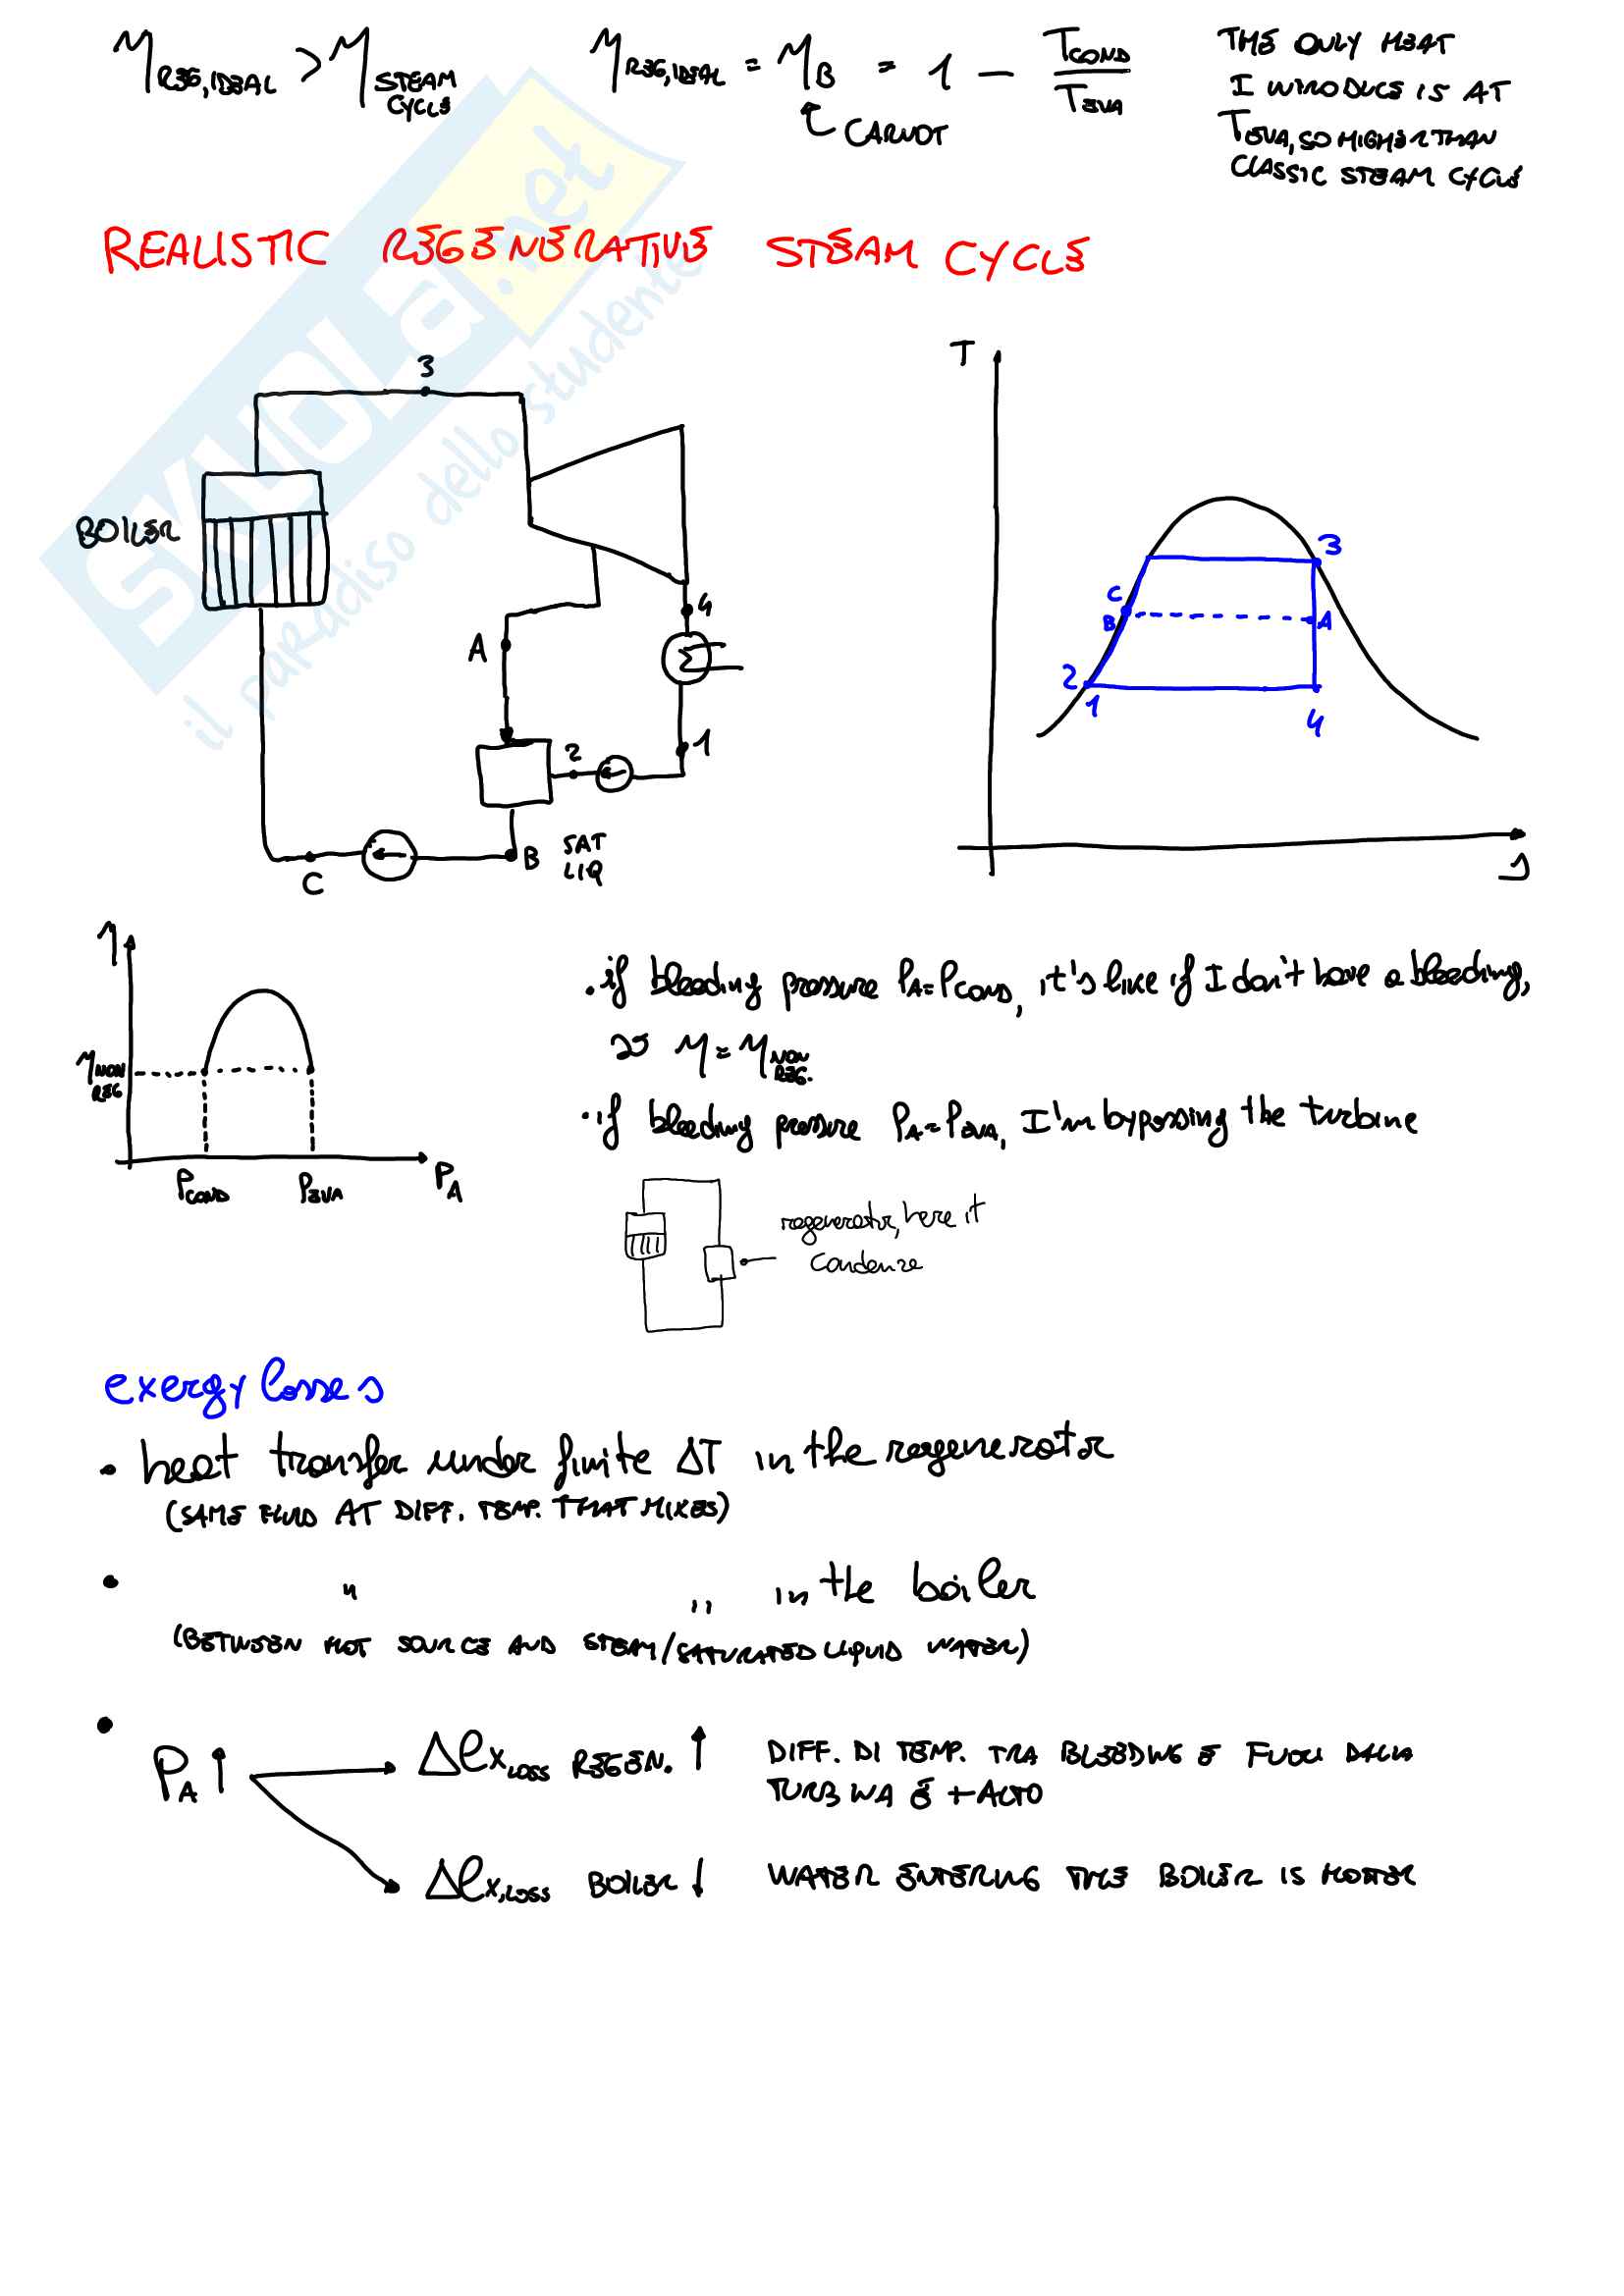 η REG, IDEAL > η STEAM CYCLE
η REG, IDEAL = η B = 1 - T COND / T EVA
CARNOT
THE ONLY HEAT
I INTRODUCE IS AT
T EVA, SO HIGHER THAN
CLASSIC STEAM CYCLE
REALISTIC REGENERATIVE STEAM CYCLE
SKUOLA.net
il paradiso dello studente
3
BOILER
4
A
2
1
B SAT
LIQ
C
T
3
C
B
A
2
1
4
s
η
η NON REG
P COND
P EVA
P A
.if bleeding pressure PA=PCOND, it's like if I don't have a bleeding,
so η = η NON REG.
.if bleeding pressure PA=PEVA, I'm bypassing the turbine
regenerator, here it
condense
exergy losses
• heat transfer under finite ΔT in the regenerator
(SAME FLUID AT DIFF. TEMP. THAT MIXES)
• " " in the boiler
(BETWEEN HOT SOURCE AND STEAM/SATURATED LIQUID WATER)
•
PA ↑
Δex,LOSS REGEN. ↑
DIFF. DI TEMP. TRA BLEEDING E FUORI DALLA
TURBINA È + ALTO
Δex,LOSS BOILER ↓
WATER ENTERING THE BOILER IS HOTTER